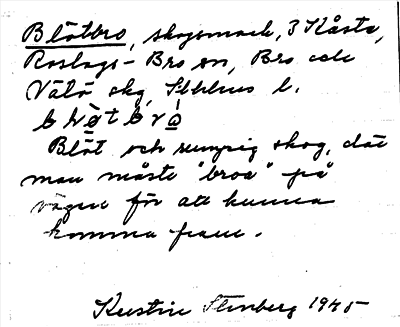 Blötbro, skogsmark, 3 Kåsta,
Roslags-Bro sn, Bro och
Vätö skg, Sthlms l.
Blöt och sumpig skog, där
man måste "broa" på
vägen för att kunna
komma fram.
Kerstin Stenberg 1945